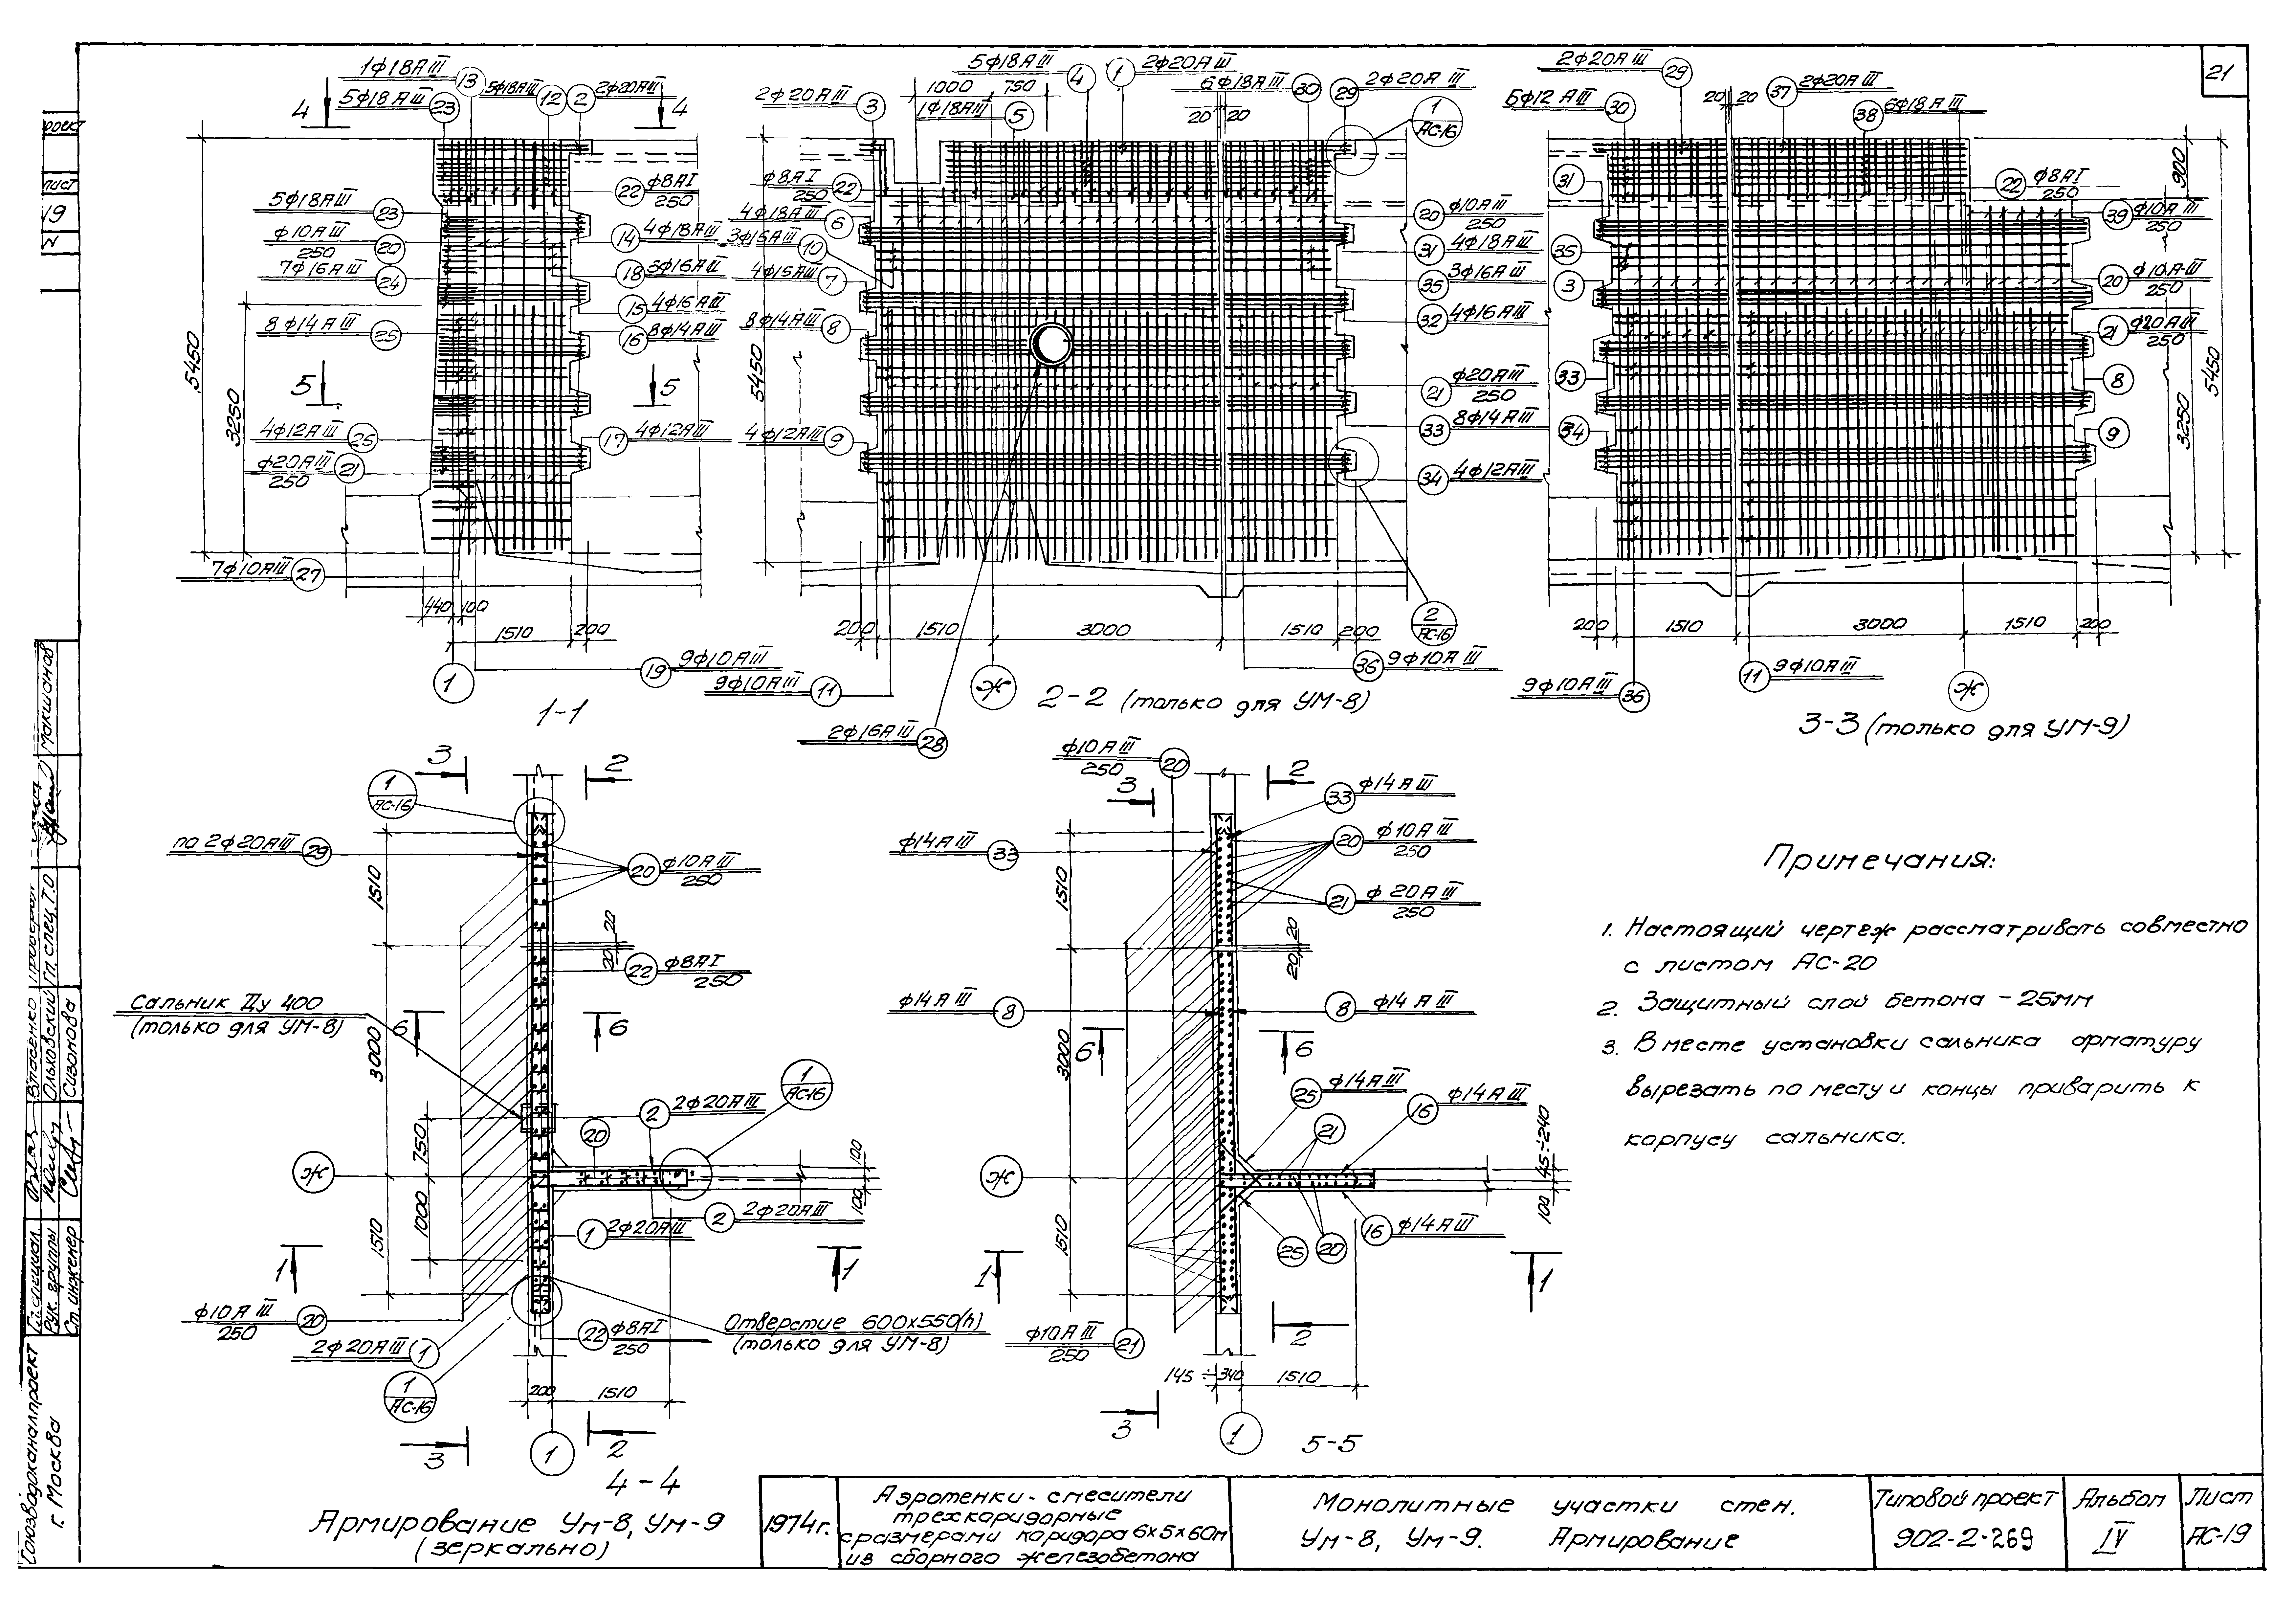 21
1Ф18АIII 13
5Ф18АIII 23
5Ф18АIII 12
2 2Ф20АIII
4 4
22 Ф8АI 250
5Ф18АIII 23
Ф10АIII 250 20
7Ф16АIII 24
8Ф14АIII 25
14 4Ф18АIII
18 5Ф16АIII
15 4Ф16АIII
16 8Ф14АIII
5 5
4Ф12АIII 25
17 4Ф12АIII
Ф20АIII 250 21
7Ф10АIII 27
5450
3250
440 100
1510 200
19 9Ф10АIII
1
1-1
2Ф20АIII 3
1000 750
1Ф18АIII 5
5Ф18АIII 4
1 2Ф20АIII
6Ф18АIII 30
29 2Ф20АIII
20 20
1 АС-16
Ф8АI 250 22
4Ф18АIII 6
3Ф16АIII 10
4Ф15АIII 7
8Ф14АIII 8
4Ф12АIII 9
5450
20 Ф10АIII 250
31 4Ф18АIII
35 3Ф16АIII
32 4Ф16АIII
21 Ф20АIII 250
33 8Ф14АIII
34 4Ф12АIII
2 АС-16
200 1510 3000 1510 200
36 9Ф10АIII
9Ф10АIII 11
2Ф16АIII 28
Ж
2-2 (только для УМ-8)
2Ф20АIII 29
6Ф12АIII 30
20 20
37 2Ф20АIII
38 6Ф18АIII
31
22 Ф8АI 250
39 Ф10АIII 250
35
3
20 Ф10АIII 250
21 Ф20АIII 250
33
8
34
9
900
5450
3250
200 1510 3000 1510 200
9Ф10АIII 36
11 9Ф10АIII
Ж
3-3 (только для УМ-9)
3 2
1 АС-16
по 2Ф20АIII 29
20 Ф10АIII 250
20 20
22 Ф8АI 250
Сальник Ду 400
(только для УМ-8)
6 6
1510
3000
750
1000
1510
1 АС-16
2 2Ф20АIII
20
Ж
100
100
2 2Ф20АIII
1 2Ф20АIII
1 1
Ф10АIII 250 20
2Ф20АIII 1
22 Ф8АI 250
Отверстие 600х550(h)
(только для УМ-8)
1 АС-16
200 1510
3 2
1
4-4
Армирование Ум-8, Ум-9
(зеркально)
Ф10АIII 250 20
3 2
33 Ф14АIII
Ф14АIII 33
20 Ф10АIII 250
21 Ф20АIII 250
20 20
Ф14АIII 8
8 Ф14АIII
6 6
1510
3000
1510
25 Ф14АIII
16 Ф14АIII
21
45÷240
100
Ж
16 Ф14АIII
25 20
1 1
Ф10АIII 250 21
2
145÷340 1510
3
1
5-5
Примечания:
1. Настоящий чертеж рассматривать совместно
с листом АС-20
2. Защитный слой бетона - 25мм
3. В месте установки сальника арматуру
вырезать по месту и концы приварить к
корпусу сальника.
1974г.
Аэротенки-смесители
трехкоридорные
с размерами коридора 6х5х60м
из сборного железобетона
Монолитные участки стен.
Ум-8, Ум-9. Армирование
Типовой проект
902-2-269
Альбом
IV
Лист
АС-19
лист
19
Макшанов
Гл. спец. Т.О
Власенко
Ольховский
Сизонова
Рук. группы
Ст. инженер
Союзводоканалпроект
г. Москва